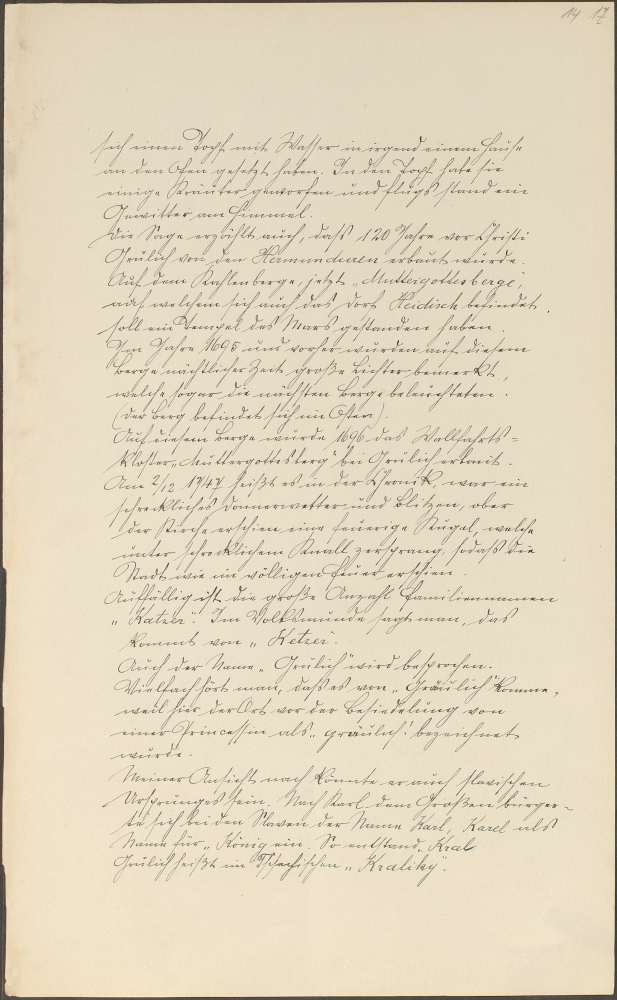 14 17
sich einen Topf mit Wasser in irgend einem Hause
an den Ofen gesetzt haben. In den Topf habe sie
einige Kräuter geworfen und flugs stand ein
Gewitter am Himmel.
Die Sage erzählt auch, daß 120 Jahre vor Christi
Grulich von den Hermunduren erbaut wurde.
Auf dem Kahlenberge, jetzt „Muttergottesberge",
nach welchem sich auch das Dorf Heidisch befindet,
soll ein Tempel des Mars gestanden haben.
Im Jahre 1695 und vorher wurden auf diesem
Berge nächtlicher Zeit große Lichter bemerkt,
welche sogar die nächsten Berge beleuchteten.
(Der Berg befindet sich im Osten).
Auf diesem Berge wurde 1696 das Wallfahrts-
kloster „Muttergottesberg" bei Grulich erbaut.
Am 2/12 1747 heißt es in der Chronik, war ein
schreckliches Donnerwetter und Blitzen, ober
der Kirche erschien eine feuerige Kugel, welche
unter schrecklichem Knall zersprang, sodaß die
Stadt wie im völligen Feuer erschien.
Auffällig ist die große Anzahl Familiennamen
„Katzer". Im Volksmunde sagt man, das
kommt von „Ketzer".
Auch der Name „Grulich" wird besprochen.
Vielfach hört man, daß es von „Gräulich" komme,
weil hier der Ort vor der Besiedelung von
einer Princessin als „gräulich" bezeichnet
wurde.
Meiner Ansicht nach könnte er auch slavischen
Ursprunges sein. Nach Karl dem Großen bürger-
te sich bei den Slaven der Name Karl, Karel als
Name für „König ein. So entstand „Kral
Grulich heißt im Tschechischen „Kraliky".